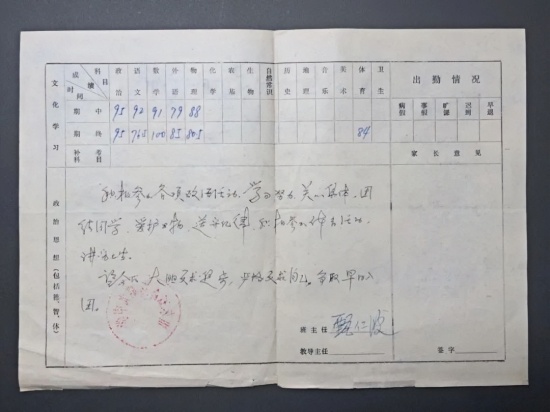 文化学习
科目
成绩
时间
政治 语文 数学 外语 物理 化学 农基 生物 自然常识 历史 地理 音乐 美术 体育 卫生
期中 95 92 91 79 88
期终 95 76.5 100 85 80.5 84
补考科目
出勤情况
病假 事假 旷课 迟到 早退
家长意见
政治思想(包括德、智、体)
积极参加各项政治活动,学习努力,关心集体,团
结同学,爱护公物,遵守纪律,积极参加体育活动,
讲究卫生。
要求进步,严格要求自己,争取早日入
团。
班主任
教导主任
签字